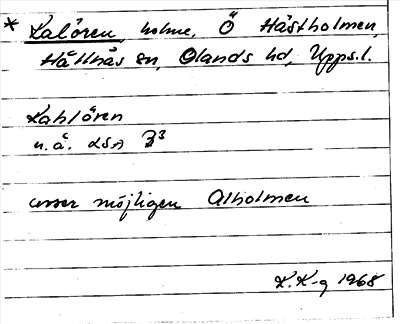 * Kalören, holme, Ö Hästholmen,
Hållnäs sn, Olands hd, Upps.l.
Kahlören
u.å. LSA B3
avser möjligen Alholmen
K.K-g 1968